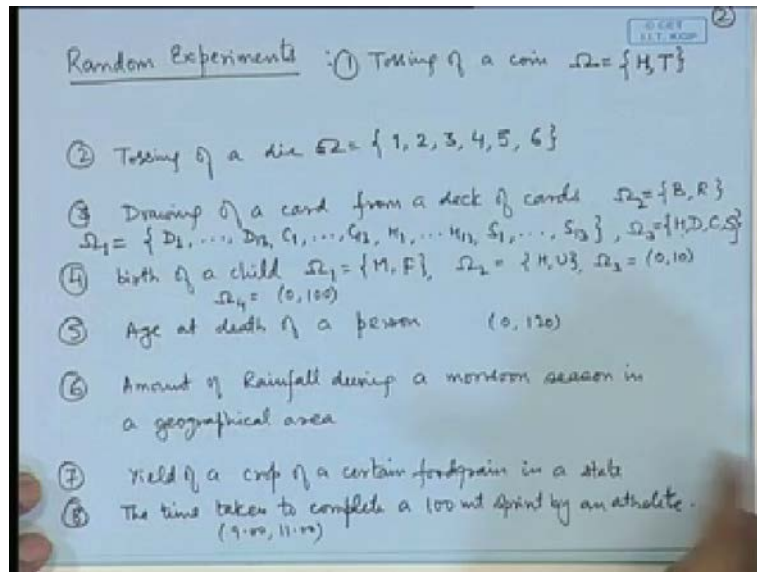 ②
© CET
I.I.T. KGP
Random Experiments :① Tossing of a coin Ω = {H, T}
② Tossing of a die Ω = {1, 2, 3, 4, 5, 6}
③ Drawing of a card from a deck of cards Ω₂ = {B, R}
Ω₁ = {D₁, ..., D₁₃, C₁, ..., C₁₃, H₁, ... H₁₃, S₁, ..., S₁₃}, Ω₃ = {H, D, C, S}
④ birth of a child Ω₁ = {M, F}, Ω₂ = {H, U}, Ω₃ = (0, 10)
Ω₄ = (0, 100)
⑤ Age at death of a person (0, 120)
⑥ Amount of Rainfall during a monsoon season in
a geographical area
⑦ Yield of a crop of a certain foodgrain in a state
⑧ The time taken to complete a 100 mt sprint by an athelete.
(9.00, 11.00)